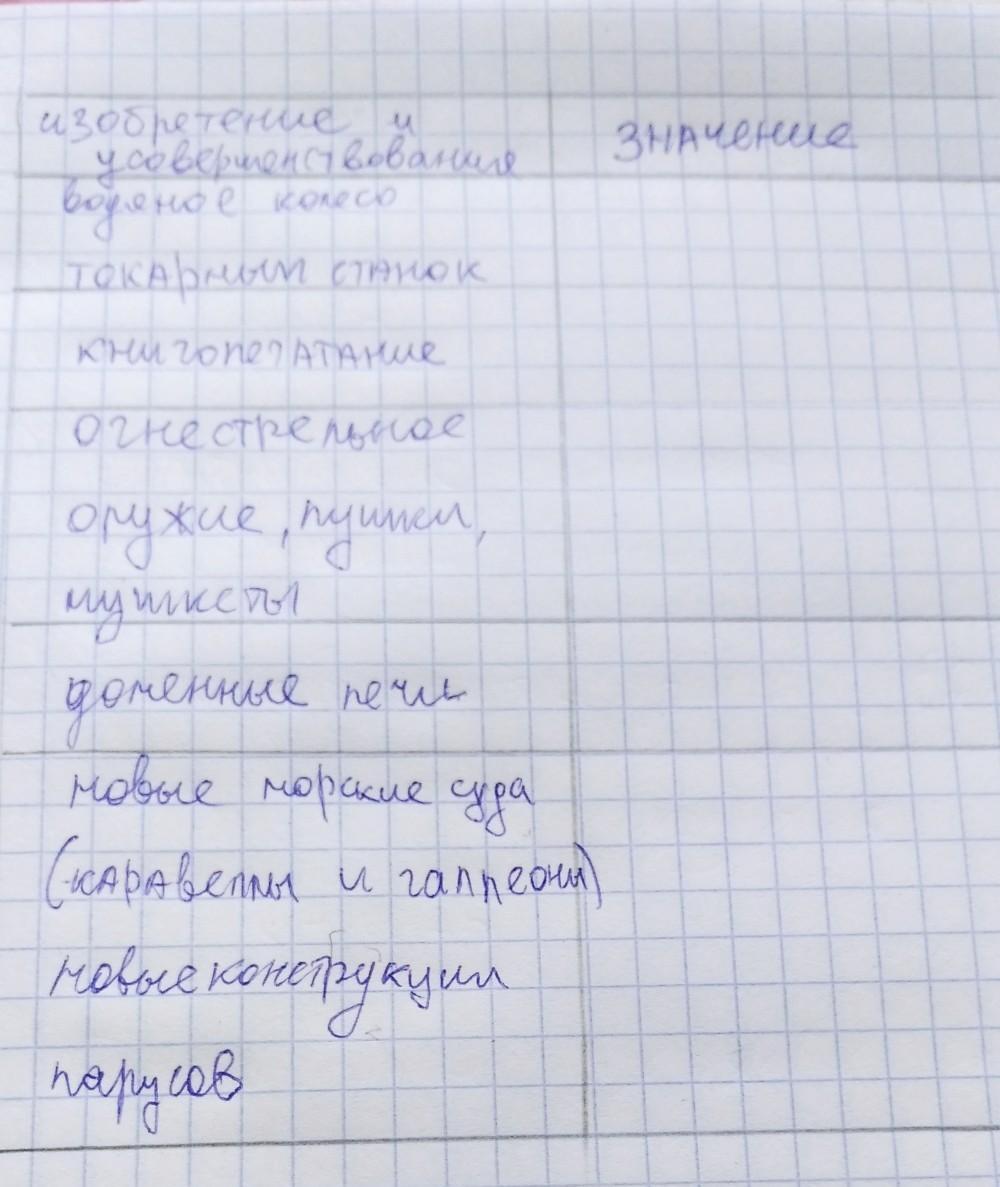 изобретение и
усовершенствования
значение
водяное колесо
токарный станок
книгопечатание
огнестрельное
оружие, пушки,
мушкеты
доменные печи
новые морские суда
(каравеллы и галлеоны)
новые конструкции
парусов